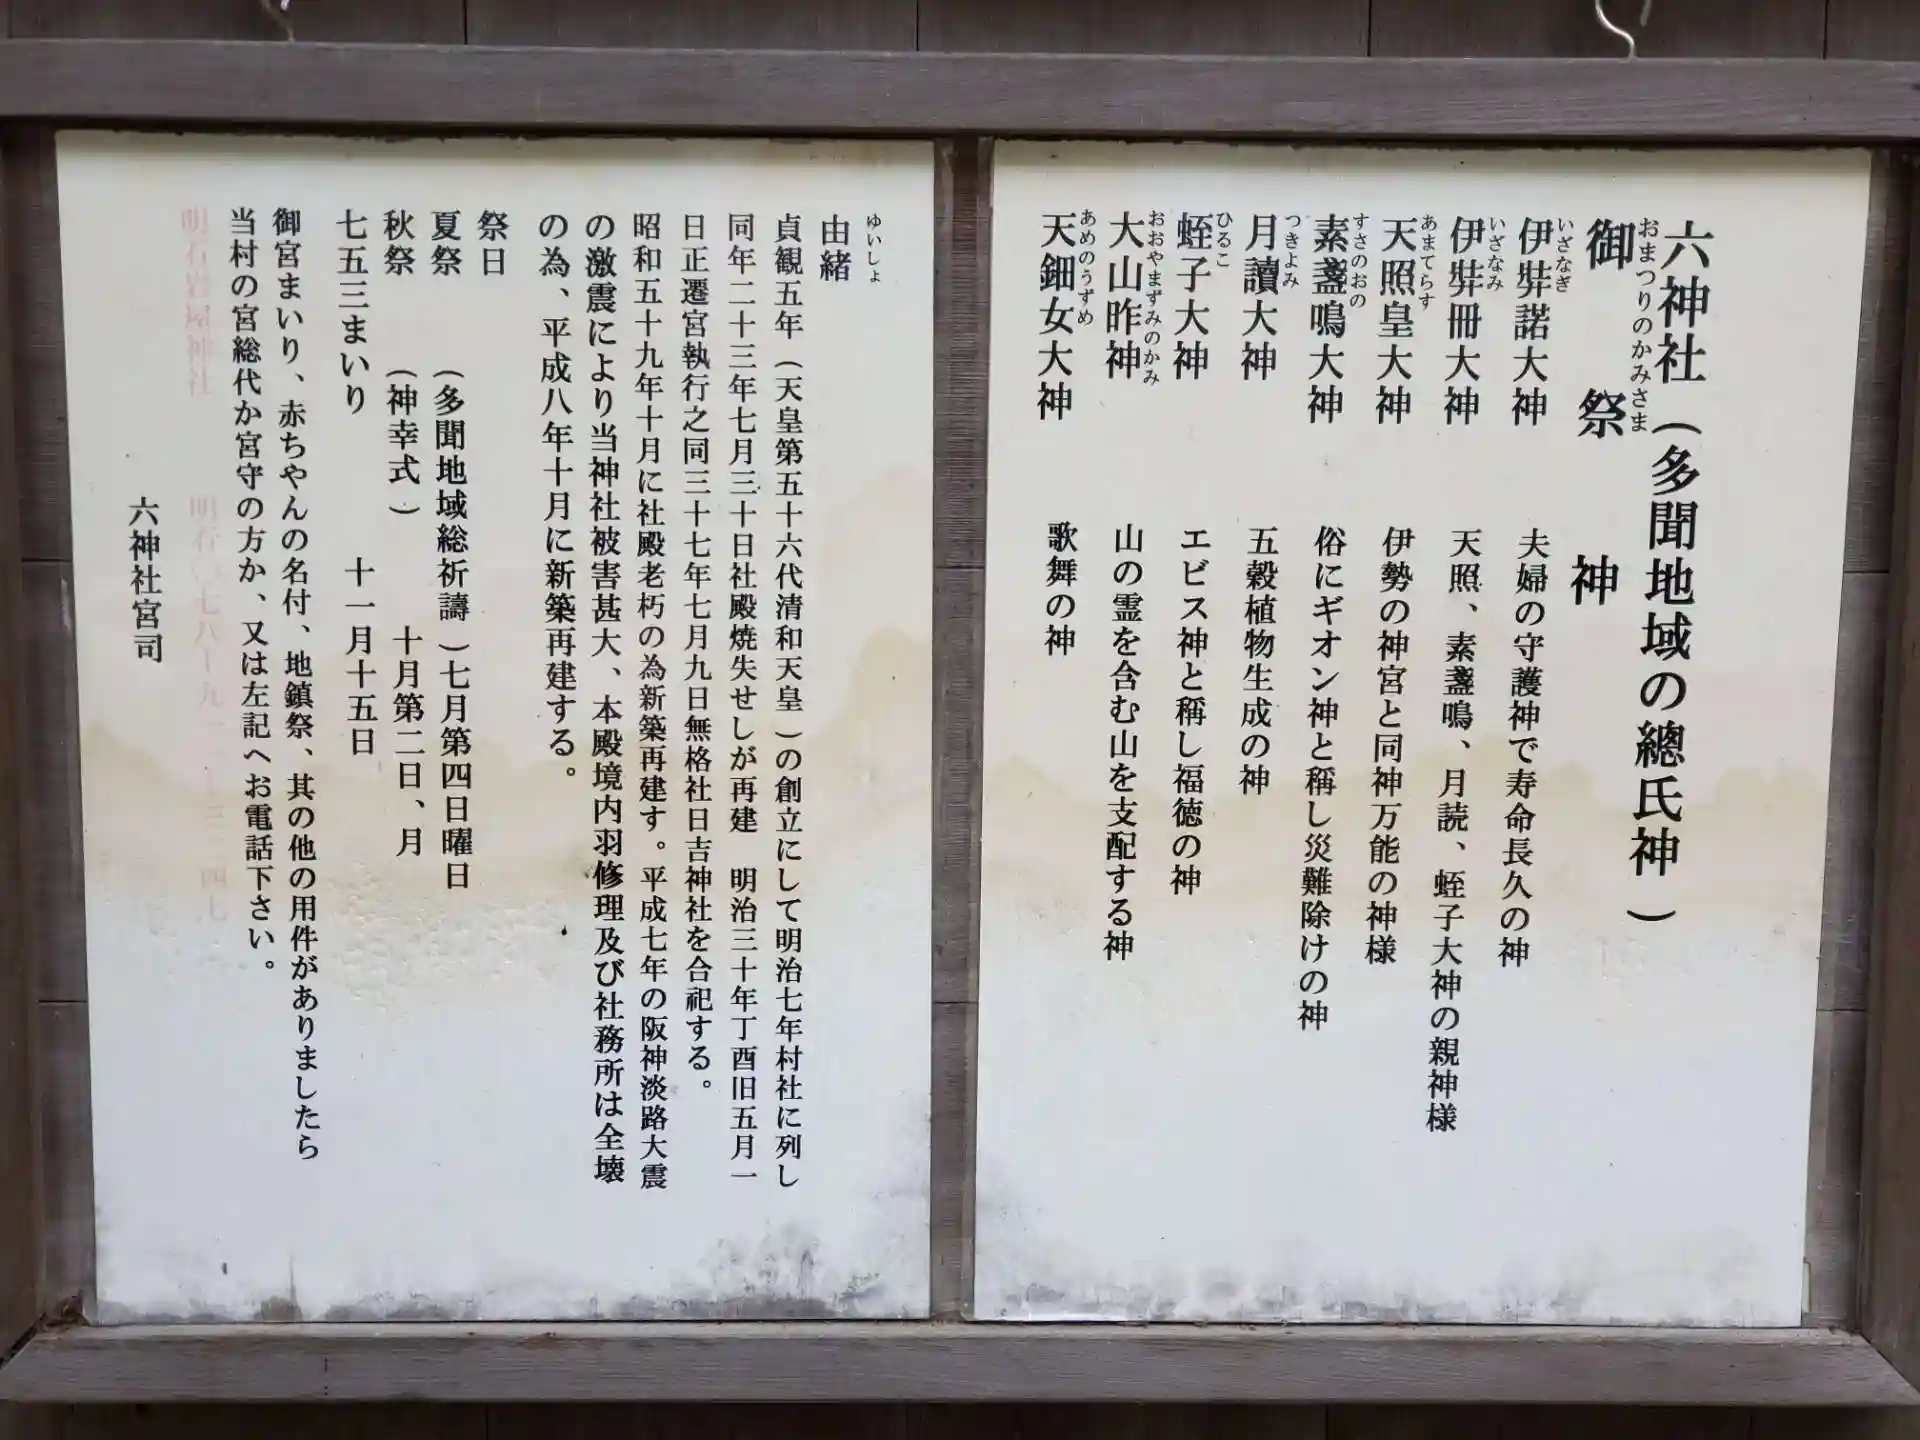 六神社（多聞地域の總氏神）
おまつりのかみさま
御祭神
いざなぎ
伊弉諾大神　夫婦の守護神で寿命長久の神
いざなみ
伊弉冊大神　天照、素盞鳴、月読、蛭子大神の親神様
あまてらす
天照皇大神　伊勢の神宮と同神万能の神様
すさのおの
素盞鳴大神　俗にギオン神と稱し災難除けの神
つきよみ
月讀大神　五穀植物生成の神
ひるこ
蛭子大神　エビス神と稱し福徳の神
おおやまずみのかみ
大山昨神　山の霊を含む山を支配する神
あめのうずめ
天鈿女大神　歌舞の神
ゆいしょ
由緒
貞観五年（天皇第五十六代清和天皇）の創立にして明治七年村社に列し
同年二十三年七月三十日社殿焼失せしが再建　明治三十年丁酉旧五月一
日正遷宮執行之同三十七年七月九日無格社日吉神社を合祀する。
昭和五十九年十月に社殿老朽の為新築再建す。平成七年の阪神淡路大震
の激震により当神社被害甚大、本殿境内羽修理及び社務所は全壊
の為、平成八年十月に新築再建する。
祭日
夏祭　（多聞地域総祈禱）七月第四日曜日
秋祭　（神幸式）　十月第二日、月
七五三まいり　十一月十五日
御宮まいり、赤ちやんの名付、地鎮祭、其の他の用件がありましたら
当村の宮総代か宮守の方か、又は左記へお電話下さい。
明石岩屋神社　明石〇七八ー九一一ー三二四七
六神社宮司